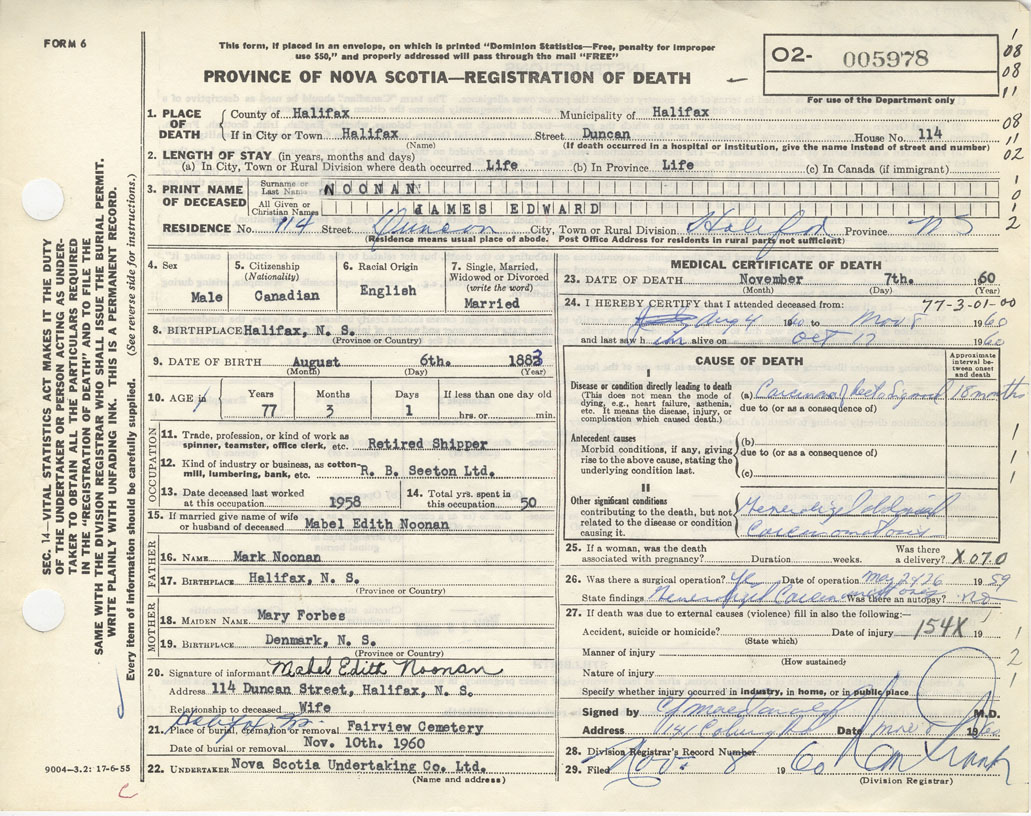 FORM 6
This form, if placed in an envelope, on which is printed "Dominion Statistics—Free, penalty for improper
use $50," and properly addressed will pass through the mail "FREE"
PROVINCE OF NOVA SCOTIA—REGISTRATION OF DEATH
02- 005978
For use of the Department only
1. PLACE OF DEATH
County of Halifax Municipality of Halifax
If in City or Town Halifax Street Duncan House No. 114
(Name) (If death occurred in a hospital or institution, give the name instead of street and number)
2. LENGTH OF STAY (in years, months and days)
(a) In City, Town or Rural Division where death occurred Life (b) In Province Life (c) In Canada (if immigrant)
3. PRINT NAME OF DECEASED
Surname or Last Name NOONAN
All Given or Christian Names JAMES EDWARD
RESIDENCE No. 114 Street Duncan City, Town or Rural Division Halifax Province N S
(Residence means usual place of abode. Post Office Address for residents in rural parts not sufficient)
4. Sex
Male
5. Citizenship
(Nationality)
Canadian
6. Racial Origin
English
7. Single, Married,
Widowed or Divorced
(write the word)
Married
8. BIRTHPLACE Halifax, N. S.
(Province or Country)
9. DATE OF BIRTH August 6th. 1883
(Month) (Day) (Year)
10. AGE in
Years Months Days If less than one day old
77 3 1 hrs. or min.
OCCUPATION
11. Trade, profession, or kind of work as
spinner, teamster, office clerk, etc. Retired Shipper
12. Kind of industry or business, as cotton
mill, lumbering, bank, etc. R. B. Seeton Ltd.
13. Date deceased last worked
at this occupation 1958
14. Total yrs. spent in
this occupation 50
15. If married give name of wife
or husband of deceased Mabel Edith Noonan
FATHER
16. NAME Mark Noonan
17. BIRTHPLACE Halifax, N. S.
(Province or Country)
MOTHER
18. MAIDEN NAME Mary Forbes
19. BIRTHPLACE Denmark, N. S.
(Province or Country)
20. Signature of informant Mabel Edith Noonan
Address 114 Duncan Street, Halifax, N. S.
Relationship to deceased Wife
Halifax
21. Place of burial, cremation or removal Fairview Cemetery
Date of burial or removal Nov. 10th. 1960
22. UNDERTAKER Nova Scotia Undertaking Co. Ltd.
(Name and address)
MEDICAL CERTIFICATE OF DEATH
23. DATE OF DEATH November 7th. 1960
(Month) (Day) (Year)
24. I HEREBY CERTIFY that I attended deceased from:
77-3-01-00
Aug 4 1960 to Nov 8 1960
and last saw him alive on Oct 17 1960
CAUSE OF DEATH
Approximate
interval be-
tween onset
and death
I
Disease or condition directly leading to death
(This does not mean the mode of
dying, e.g., heart failure, asthenia,
etc. It means the disease, injury, or
complication which caused death.)
(a) Carcinoma of rectosigmoid 18 months
due to (or as a consequence of)
Antecedent causes
Morbid conditions, if any, giving
rise to the above cause, stating the
underlying condition last.
(b)
due to (or as a consequence of)
(c)
II
Other significant conditions
contributing to the death, but not
related to the disease or condition
causing it.
Generalized abdominal
Carcinomatosis
25. If a woman, was the death
associated with pregnancy? Duration weeks. Was there
a delivery? X 07.0
26. Was there a surgical operation? Yes Date of operation May 2426 1959
State findings Generalized Carcinomatosis Was there an autopsy? no
27. If death was due to external causes (violence) fill in also the following:—
Accident, suicide or homicide? Date of injury 154X 19
(State which)
Manner of injury
(How sustained)
Nature of injury
Specify whether injury occurred in industry, in home, or in public place
Signed by M.D.
Address 141 Coburg Rd Date Nov 8 1960
28. Division Registrar's Record Number
29. Filed Nov. 8 1960
(Division Registrar)
SEC. 14—VITAL STATISTICS ACT MAKES IT THE DUTY
OF THE UNDERTAKER OR PERSON ACTING AS UNDER-
TAKER TO OBTAIN ALL THE PARTICULARS REQUIRED
IN THE "REGISTRATION OF DEATH" AND TO FILE THE
SAME WITH THE DIVISION REGISTRAR WHO SHALL ISSUE THE BURIAL PERMIT.
WRITE PLAINLY WITH UNFADING INK. THIS IS A PERMANENT RECORD.
Every item of information should be carefully supplied. (See reverse side for instructions.)
9004—3.2: 17-6-55
1
08
08
11
08
11
02
1
0
1
2
1
1
1
1
2
1